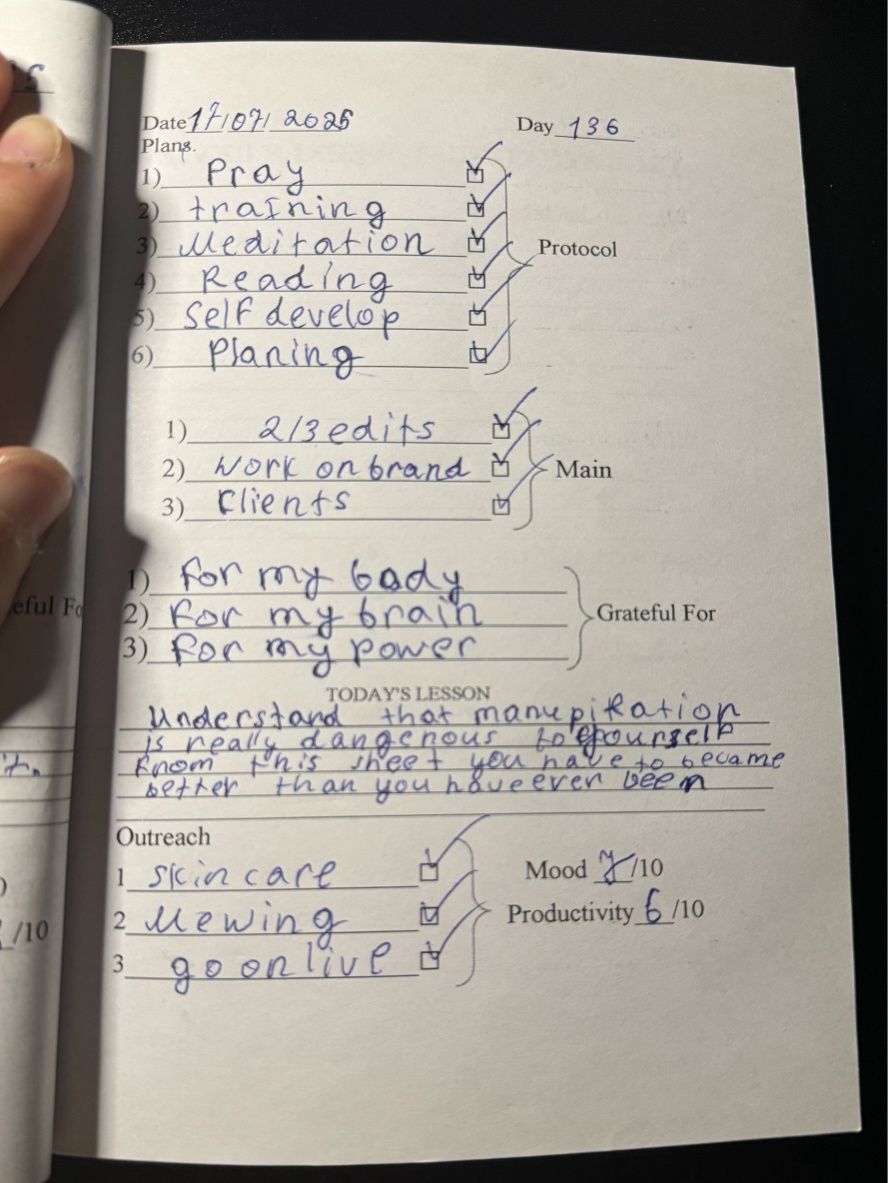 Date 17/07/2025 Day 136
Plans.
1) Pray
2) training
3) Meditation
4) Reading
5) Self develop
6) Planing
Protocol
1) 2/3 edits
2) Work on brand
3) Clients
Main
1) For my body
2) For my brain
3) For my power
Grateful For
TODAY'S LESSON
Understand that
is really dangerous to yourself
From this sheet you have to became
better than you have ever been
Outreach
1 skin care
2 Mewing
3 go on live
Mood 7/10
Productivity 6/10
eful Fo
it.
/10